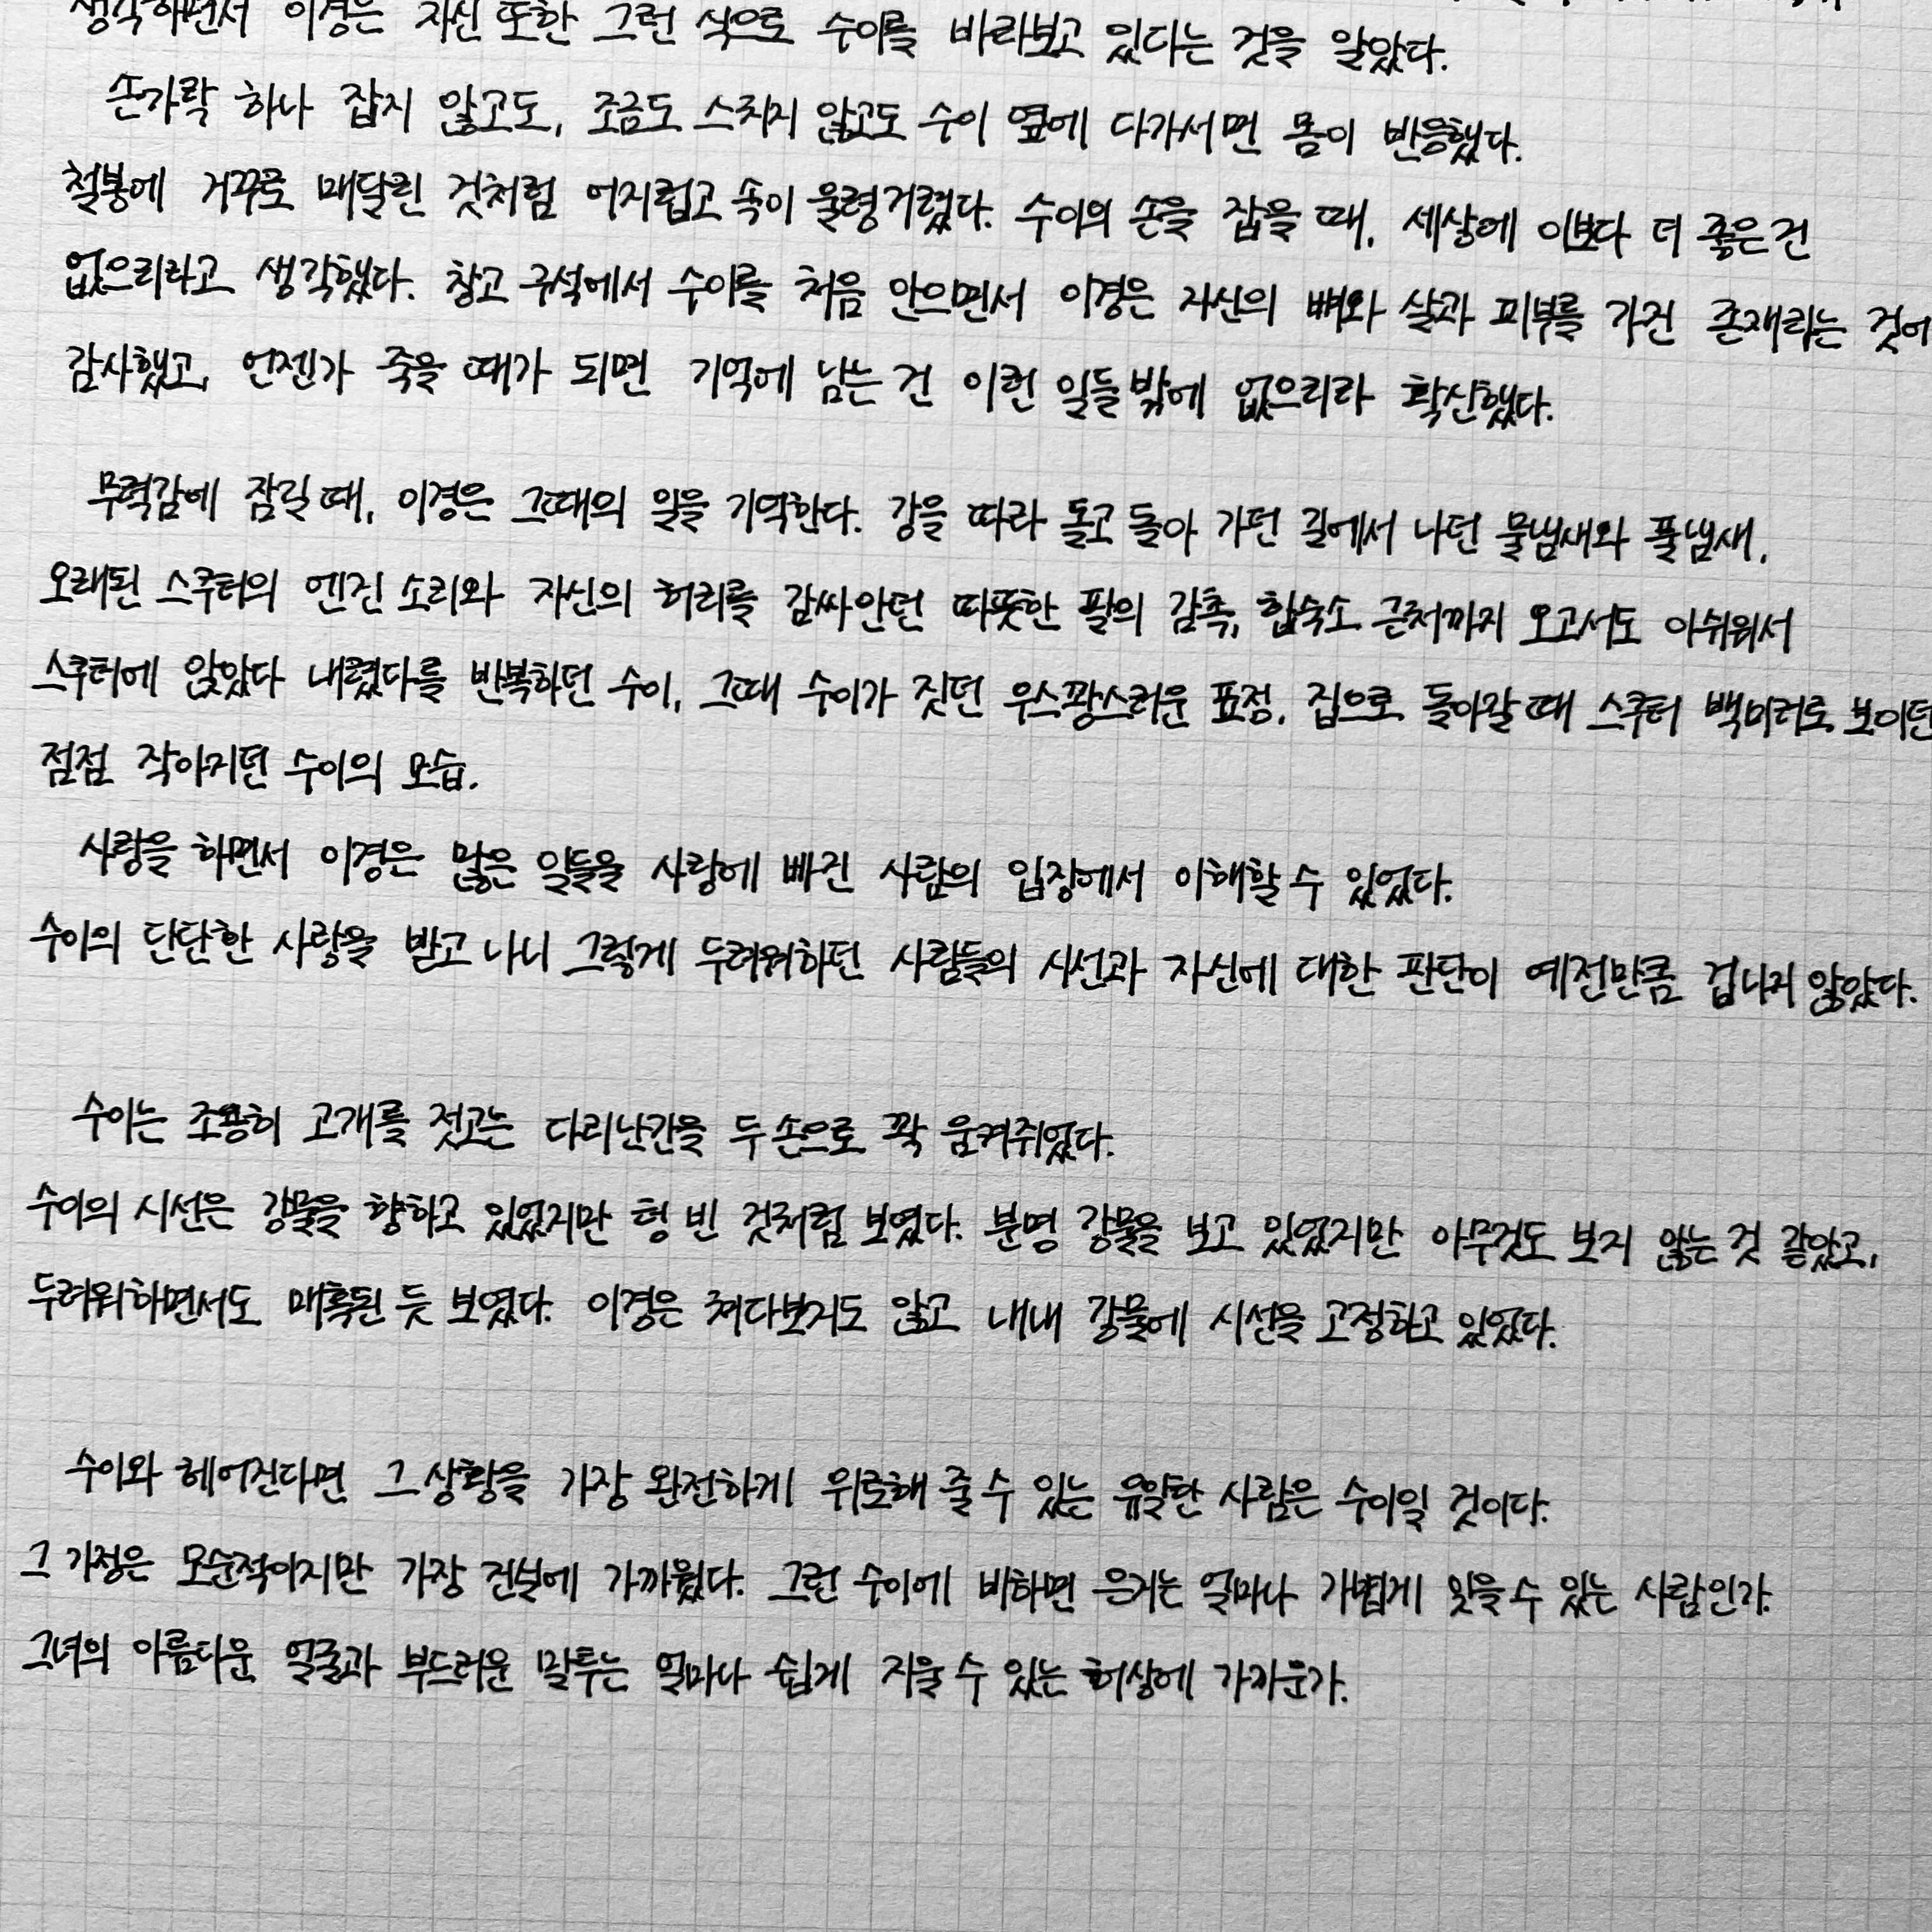 생각하면서 이경은 자신 또한 그런 식으로 수이를 바라보고 있다는 것을 알았다.
손가락 하나 잡지 않고도, 조금도 스치지 않고도 수이 옆에 다가서면 몸이 반응했다.
철봉에 거꾸로 매달린 것처럼 어지럽고 속이 울렁거렸다. 수이의 손을 잡을 때, 세상에 이보다 더 좋은건
없으리라고 생각했다. 창고 구석에서 수이를 처음 안으면서 이경은 자신의 뼈와 살과 피부를 가진 존재라는 것에
감사했고, 언젠가 죽을 때가 되면 기억에 남는 건 이런 일들밖에 없으리라 확신했다.
무력감에 잠길 때, 이경은 그때의 일을 기억한다. 강을 따라 돌고 돌아 가던 길에서 나던 물냄새와 풀냄새,
오래된 스쿠터의 엔진 소리와 자신의 허리를 감싸안던 따뜻한 팔의 감촉, 합숙소 근처까지 오고서도 아쉬워서
스쿠터에 앉았다 내렸다를 반복하던 수이, 그때 수이가 짓던 우스꽝스러운 표정, 집으로 돌아갈 때 스쿠터 백미러로 보이던
점점 작아지던 수이의 모습.
사랑을 하면서 이경은 많은 일들을 사랑에 빠진 사람의 입장에서 이해할 수 있었다.
수이의 단단한 사랑을 받고 나니 그렇게 두려워하던 사람들의 시선과 자신에 대한 판단이 예전만큼 겁나지 않았다.
수이는 조용히 고개를 젓고는 다리난간을 두 손으로 꽉 움켜쥐었다.
수이의 시선은 강물을 향하고 있었지만 텅 빈 것처럼 보였다. 분명 강물을 보고 있었지만 아무것도 보지 않는 것 같았고,
두려워하면서도 매혹된 듯 보였다. 이경은 쳐다보지도 않고 내내 강물에 시선을 고정하고 있었다.
수이와 헤어진다면 그 상황을 가장 완전하게 위로해 줄 수 있는 유일한 사람은 수이일 것이다.
그 가정은 모순적이지만 가장 진실에 가까웠다. 그런 수이에 비하면 은지는 얼마나 가볍게 잊을 수 있는 사람인가.
그녀의 아름다운 얼굴과 부드러운 말투는 얼마나 쉽게 지울 수 있는 허상에 가까운가.